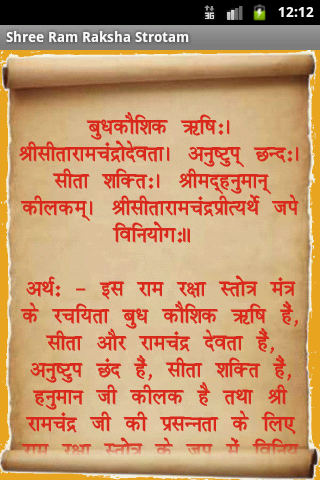 3G 12:12
Shree Ram Raksha Strotam
बुधकौशिक ऋषिः।
श्रीसीतारामचंद्रोदेवता। अनुष्टुप् छन्दः।
सीता शक्तिः। श्रीमद्‌हनुमान्
कीलकम्। श्रीसीतारामचंद्रप्रीत्यर्थे जपे
विनियोगः॥
अर्थः - इस राम रक्षा स्तोत्र मंत्र
के रचयिता बुध कौशिक ऋषि हैं,
सीता और रामचंद्र देवता हैं,
अनुष्टुप छंद हैं, सीता शक्ति हैं,
हनुमान जी कीलक है तथा श्री
रामचंद्र जी की प्रसन्नता के लिए
राम रक्षा स्तोत्र के जप में